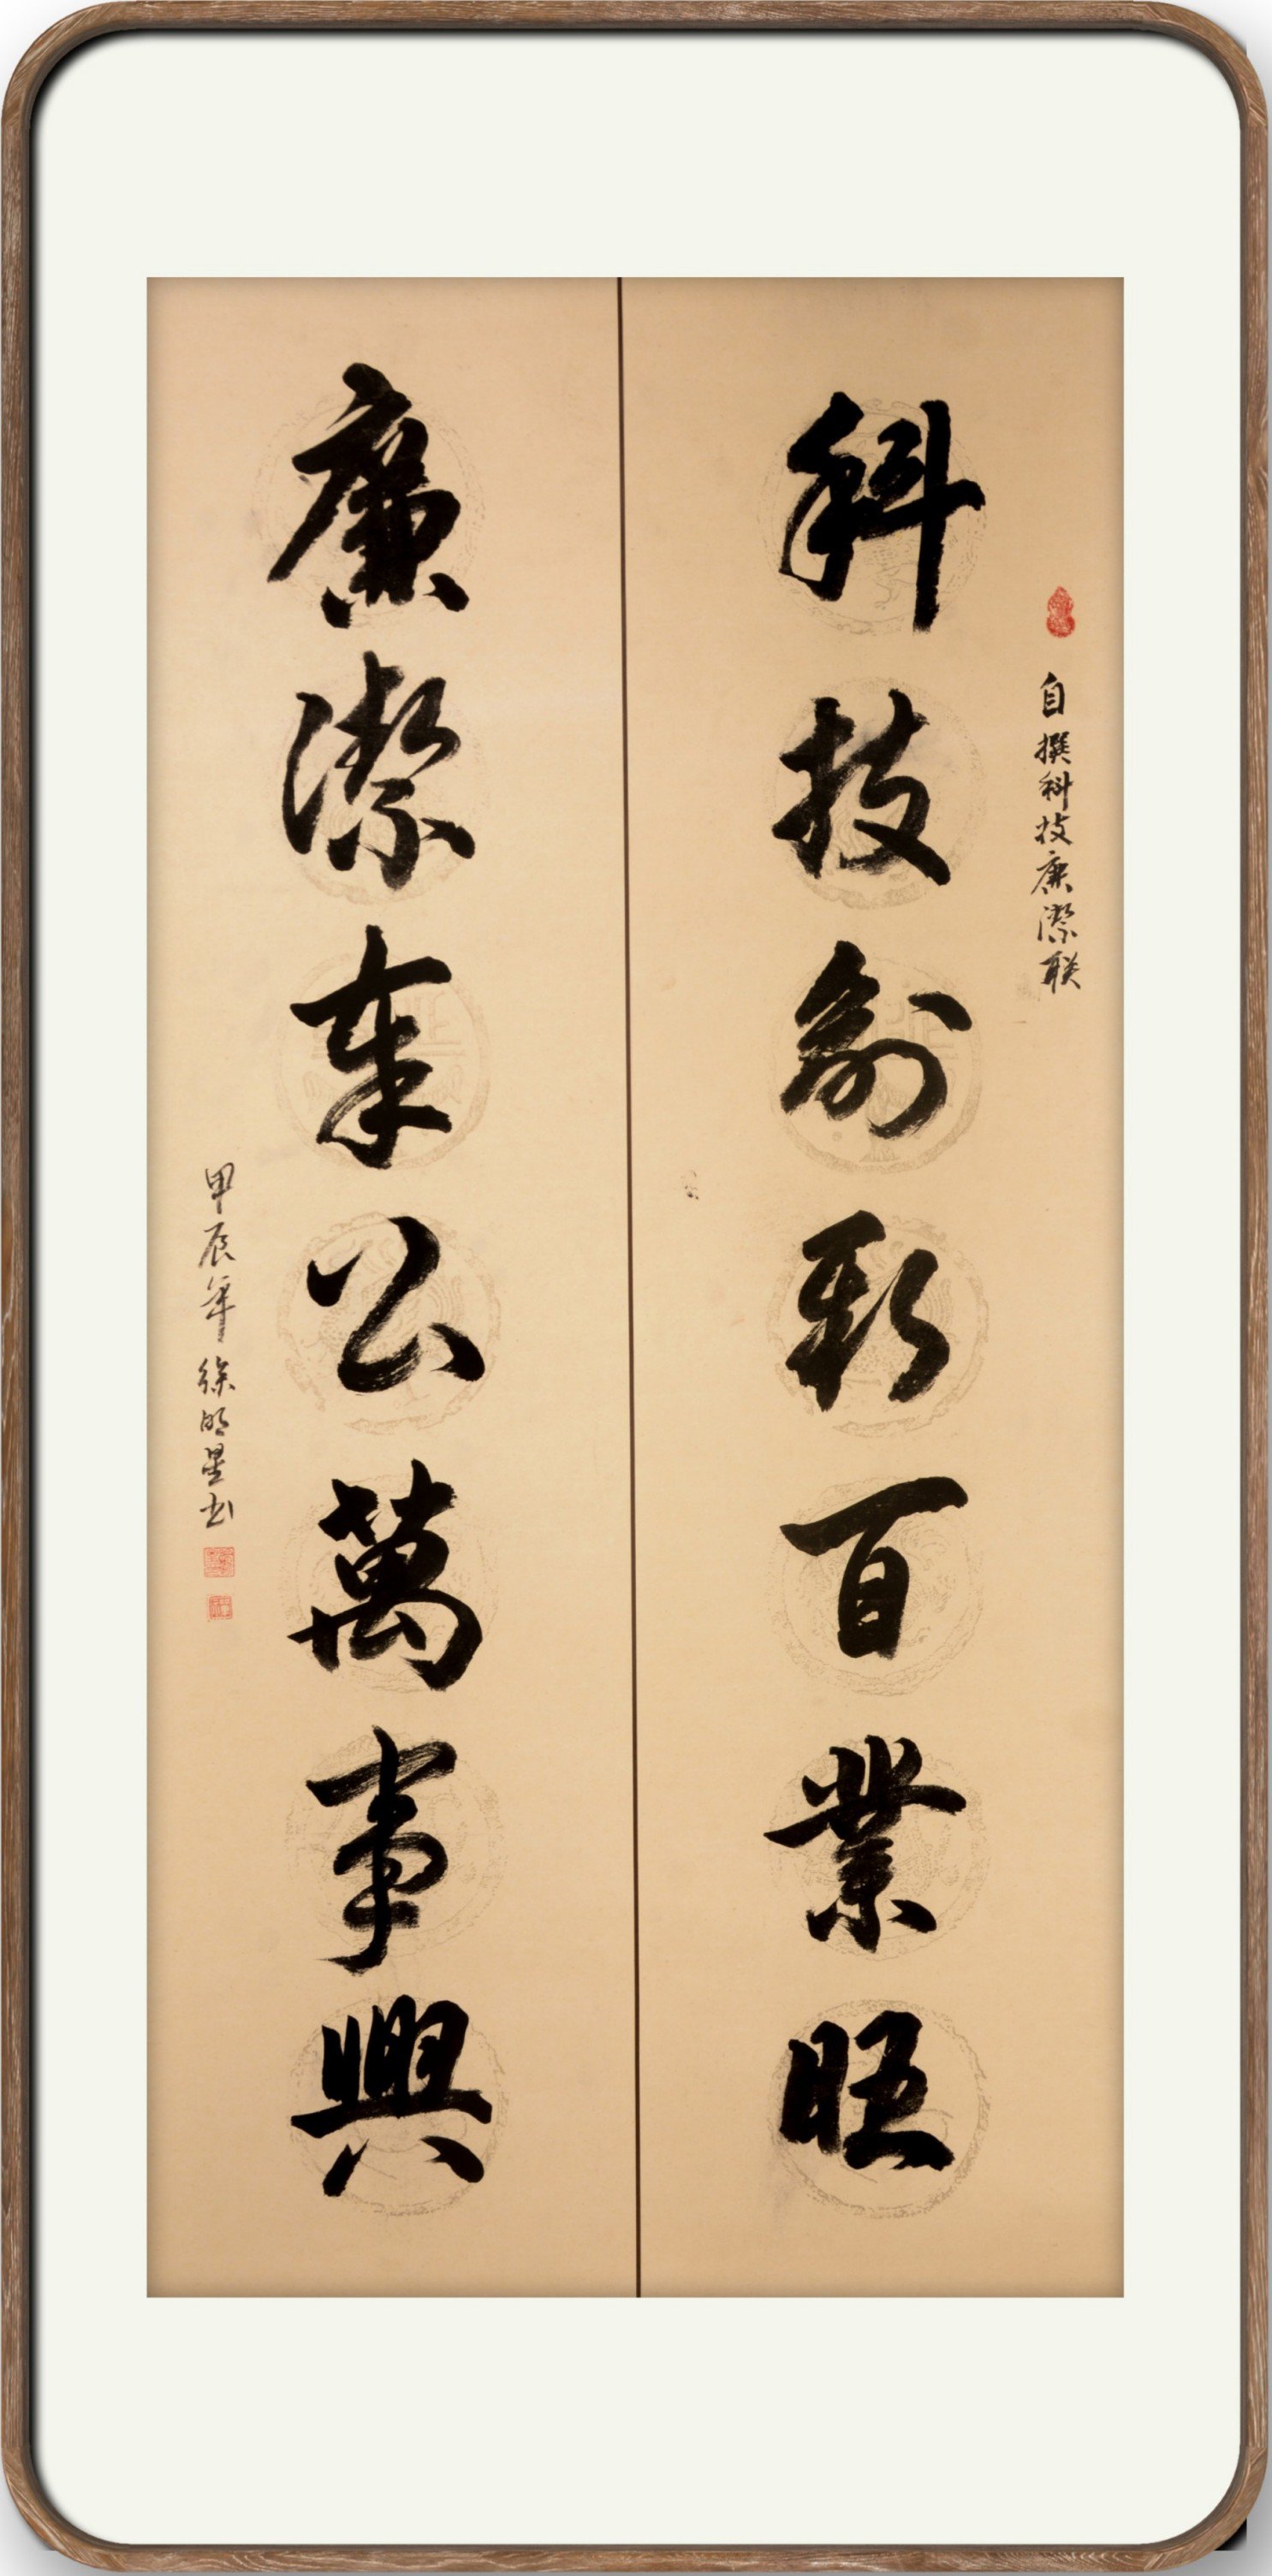 自撰科技廉潔联
科技創新百業旺
廉潔奉公萬事興
甲辰年徐明星书